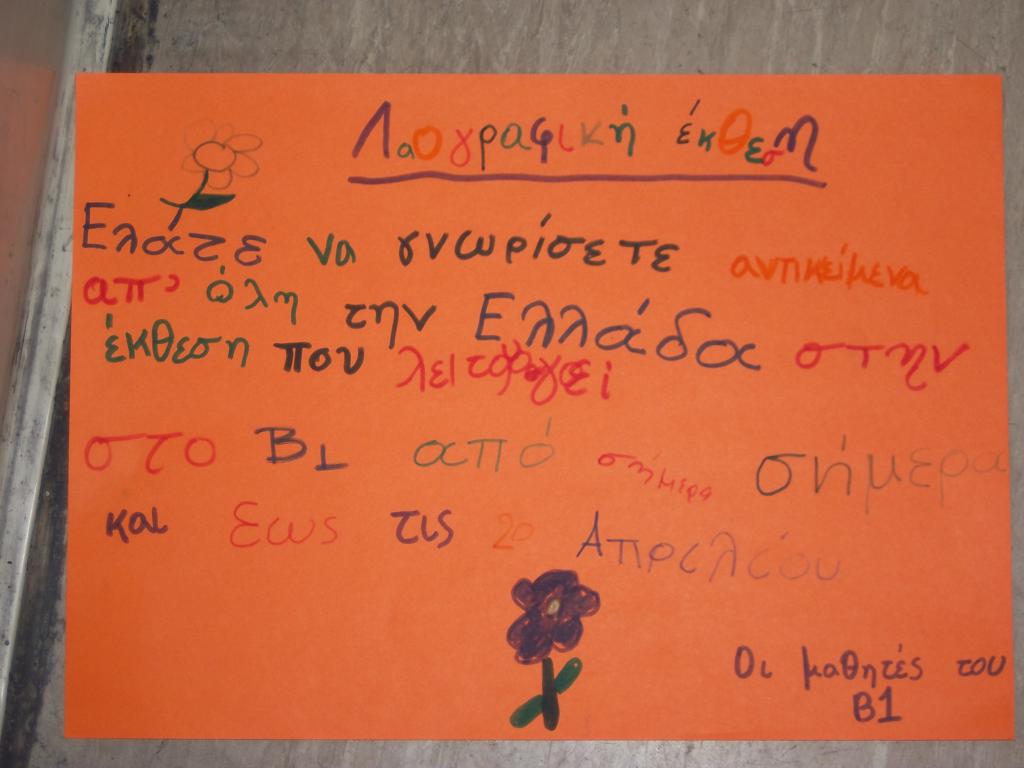 Λαογραφική έκθεση
Ελάτε να γνωρίσετε αντικείμενα
απ' όλη την Ελλάδα στην
έκθεση που
στο Β1 από σήμερα σήμερα
και εως τις 20 Απριλίου
Οι μαθητές του
Β1